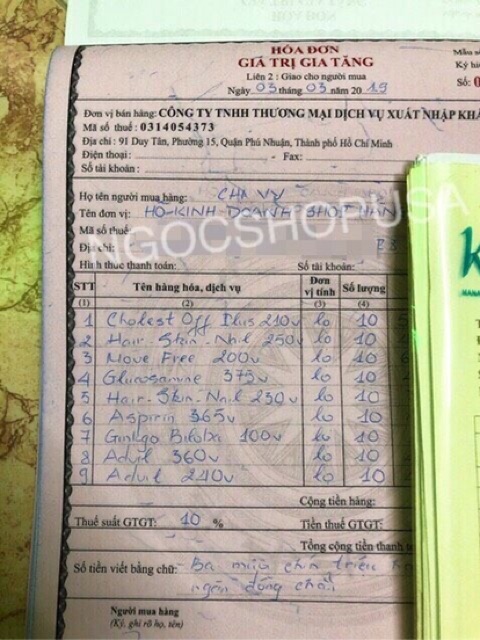 HÓA ĐƠN
GIÁ TRỊ GIA TĂNG
Liên 2 : Giao cho người mua
Ngày 03 tháng 03 năm 2019
Mẫu số
Ký hi
Số: 0
Đơn vị bán hàng: CÔNG TY TNHH THƯƠNG MẠI DỊCH VỤ XUẤT NHẬP KHẨ
Mã số thuế : 0314054373
Địa chỉ : 91 Duy Tân, Phường 15, Quận Phú Nhuận, Thành phố Hồ Chí Minh
Điện thoại: - Fax:
Số tài khoản:
Họ tên người mua hàng: CHỊ VY
Tên đơn vị: HỘ KINH DOANH SHOP HÀN
Mã số thuế:
NGOCSHOPUSA
Địa chỉ:
Hình thức thanh toán: Số tài khoản:
STT Tên hàng hóa, dịch vụ Đơn vị tính Số lượng
(1) (2) (3) (4)
1 Cholest Off Plus 210v lo 10
2 Hair - Skin - Nail 250v lo 10
3 Move Free 200v lo 10
4 Glucosamine 375v lo 10
5 Hair - Skin - Nail 230v lo 10
6 Aspirin 365v lo 10
7 Ginkgo Biloba 100v lo 10
8 Advil 360v lo 10
9 Advil 240v lo 10
Cộng tiền hàng:
Thuế suất GTGT: 10 % Tiền thuế GTGT:
Tổng cộng tiền thanh to
Số tiền viết bằng chữ: Ba mươi chín triệu
ngàn đồng chẵn
Người mua hàng
(Ký, ghi rõ họ, tên)